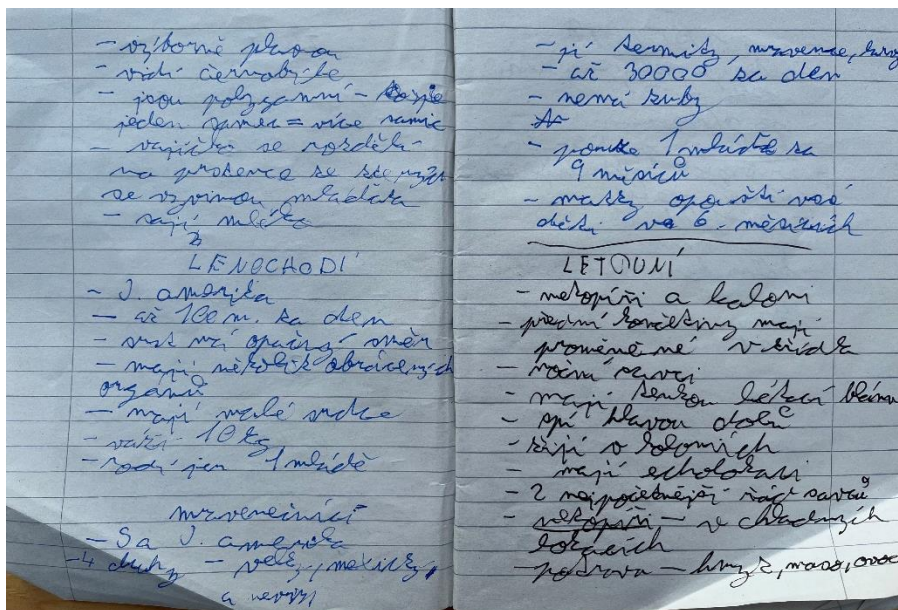 - výborně plavou
- vidí černobíle
- jsou polygamní -
jeden samec = více samic
- vajíčka se rozdělí
na prohence se kterých
se vyvinou mláďata
- sají mléko
LENOCHODI
- J. amerika
- až 100 m. za den
- srst má opačný směr
- mají několik obrácených
orgánů
- mají malé srdce
- váží 10 kg
- rodí jen 1 mládě
mravenečníci
- S a J. amerika
- 4 druhy - velký, mexický,
- jí termity, mravence,
- až 30000 za den
- nemá zuby
- pouze 1 mládě za
9 měsíců
- matky opouští své
děti v 6. měsících
LETOUNI
- netopíři a kaloni
- přední končetiny mají
proměněné v křídla
- noční savci
- mají tenkou létací blánu
- spí hlavou dolů
- žijí v koloniích
- mají echolokaci
- 2 nejpočetnější řád savců
- netopíři - v chladných
lokacích
- potrava - hmyz, maso, ovoc